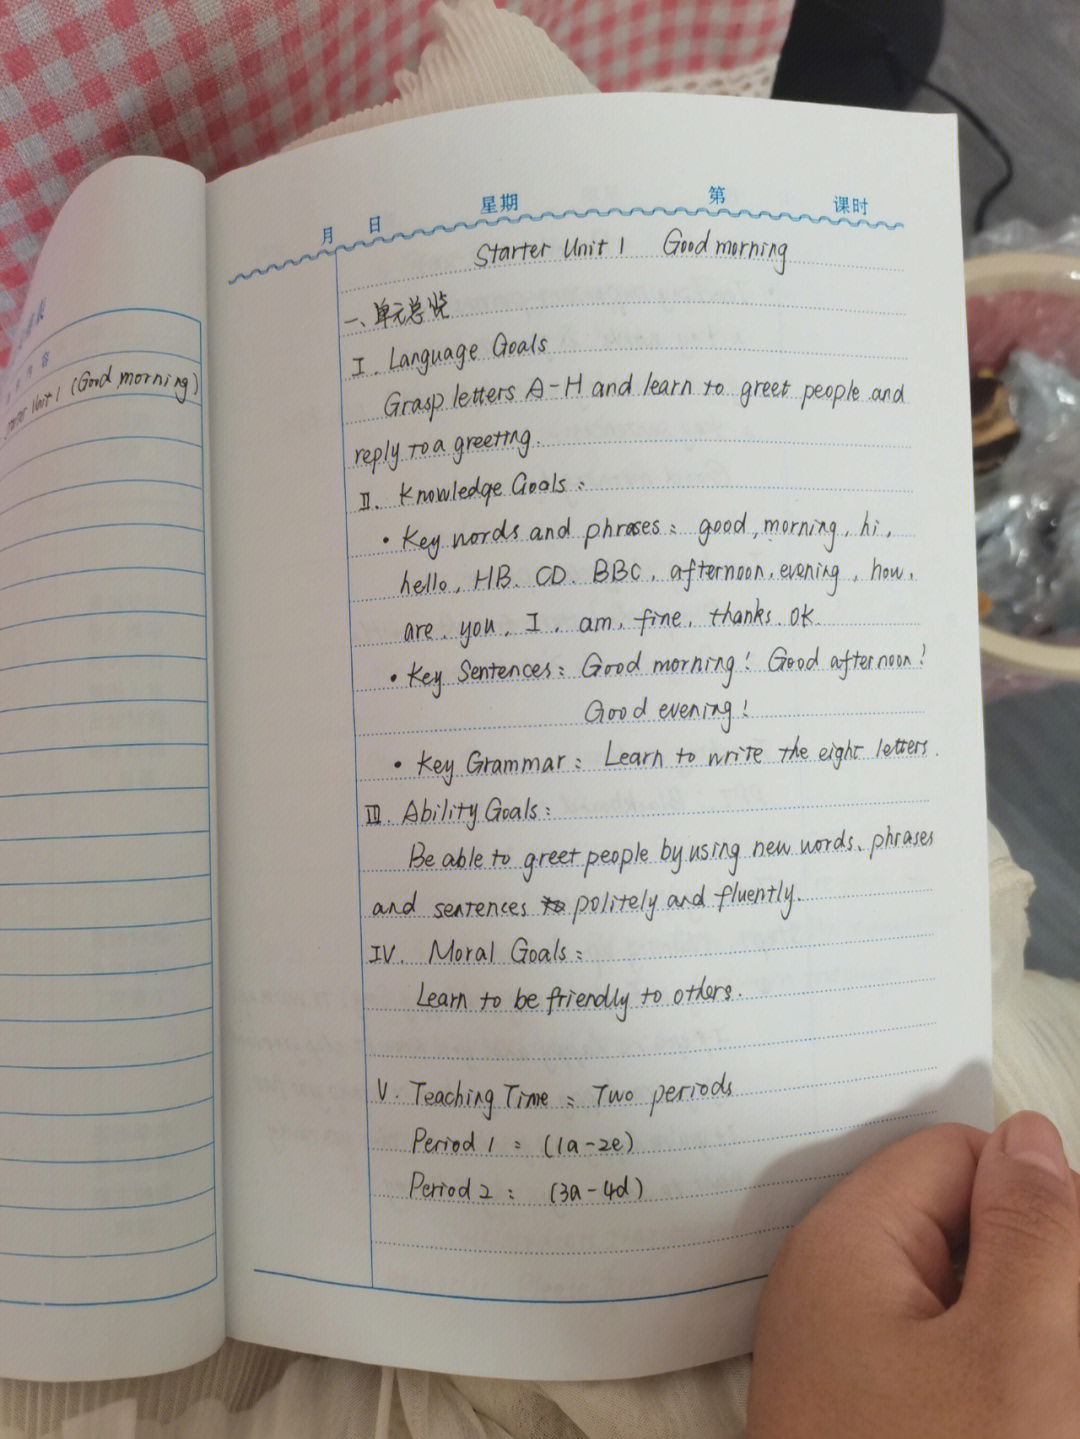 内容
Starter Unit 1 (Good morning)
月 日 星期 第 课时
Starter Unit 1 Good morning
一、单元总览
I. Language Goals
Grasp letters A-H and learn to greet people and
reply to a greeting.
II. Knowledge Goals:
• Key words and phrases: good, morning, hi,
hello, HB, CD, BBC, afternoon, evening, how,
are, you, I, am, fine, thanks, OK.
• Key Sentences: Good morning! Good afternoon!
Good evening!
• Key Grammar: Learn to write the eight letters.
III. Ability Goals:
Be able to greet people by using new words, phrases
and sentences politely and fluently.
IV. Moral Goals:
Learn to be friendly to others.
V. Teaching Time: Two periods
Period 1: (1a-2e)
Period 2: (3a-4d)